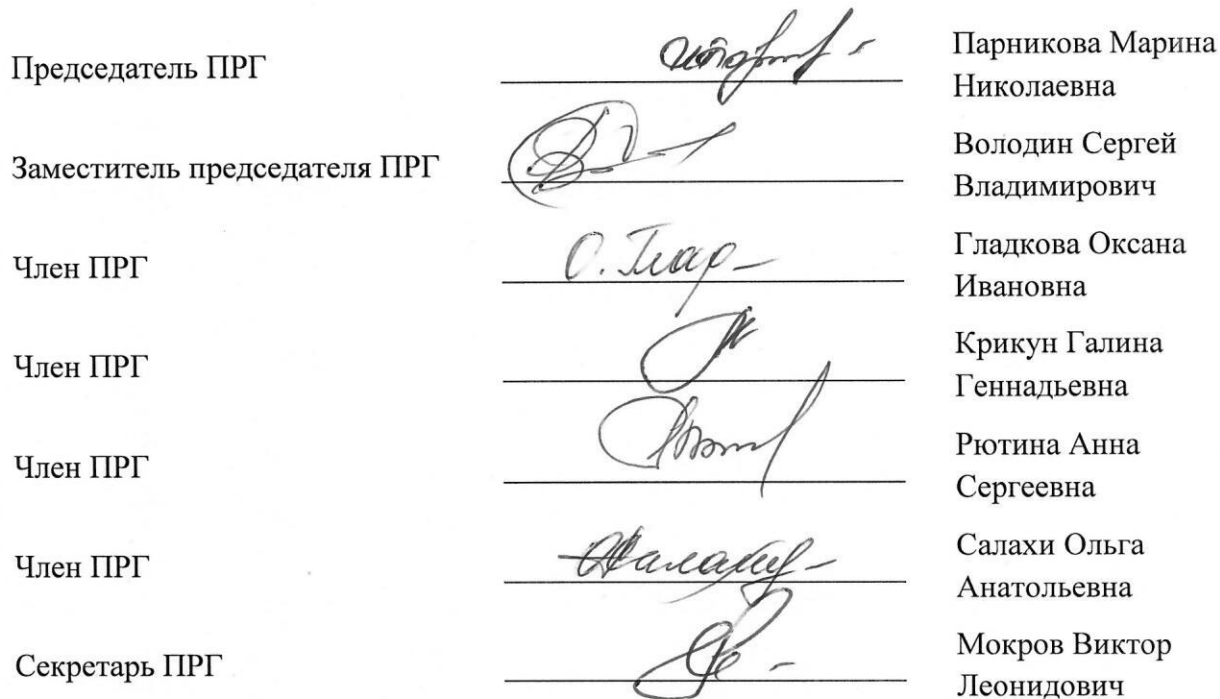 Председатель ПРГ
Парникова Марина
Николаевна
Заместитель председателя ПРГ
Володин Сергей
Владимирович
Член ПРГ
О. Глад
Гладкова Оксана
Ивановна
Член ПРГ
Крикун Галина
Геннадьевна
Член ПРГ
Рютина Анна
Сергеевна
Член ПРГ
Салахи Ольга
Анатольевна
Секретарь ПРГ
Мокров Виктор
Леонидович